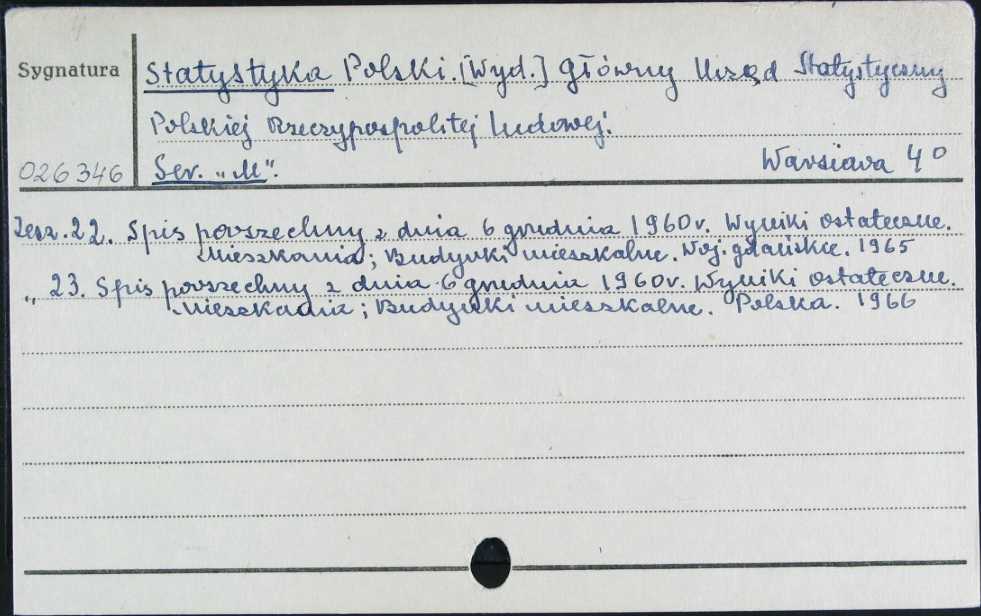 4
Sygnatura
Statystyka Polski. [Wyd.] Główny Urząd Statystyczny
Polskiej Rzeczypospolitej Ludowej.
026346 Ser. „M". Warszawa 4°
Zesz. 22. Spis powszechny z dnia 6 grudnia 1960 r. Wyniki ostateczne.
Mieszkania; Budynki mieszkalne. Woj. gdańskie. 1965
„ 23. Spis powszechny z dnia 6 grudnia 1960 r. Wyniki ostateczne.
Mieszkania; Budynki mieszkalne. Polska. 1966